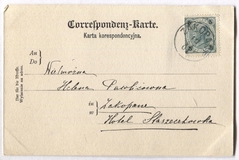 Correspondenz-Karte.
Karta korespondencyjna.
An
Do
Wielmożna
Helena Pawlikowska
in
w
Zakopane
Hotel Staszeczkówka